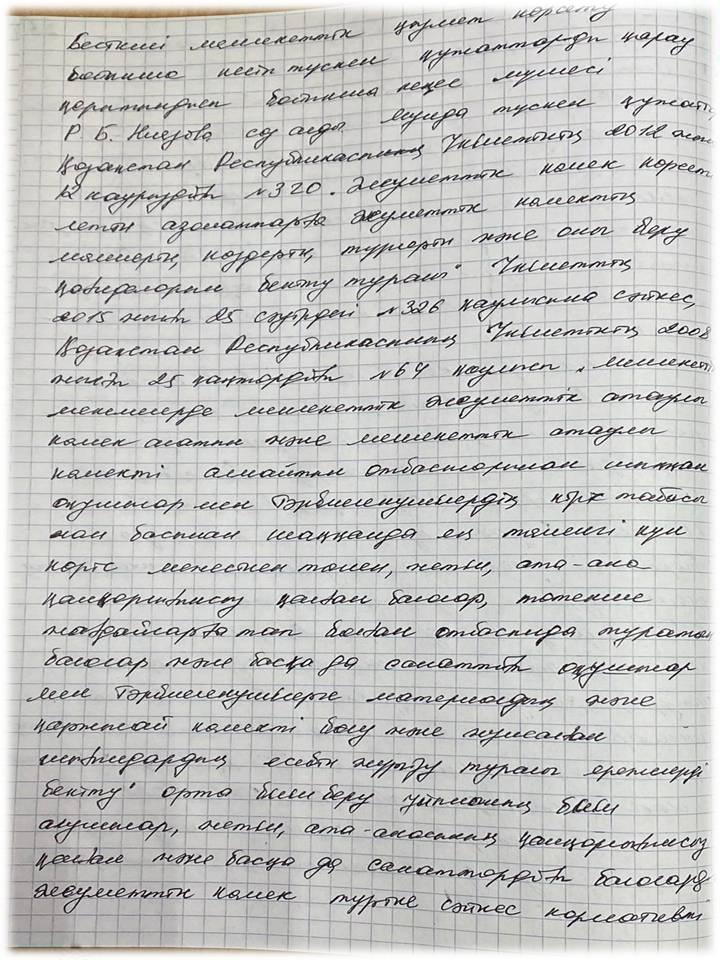 Бесінші мемлекеттік қызмет көрсету
бойынша келіп түскен құжаттарды қарау
қорытындысы бойынша кеңес мүшесі
Р. Б. Ниязова сөз алды мұнда түскен құжатты
Қазақстан Республикасының Үкіметінің 2012 жыл
12 наурыздағы №320. Әлеуметтік көмек көрсет
летін азаматтарға әлеуметтік көмектің
мөлшерін, көздерін, түрлерін және оны беру
қағидаларын бекіту туралы" Үкіметтің
2015 жылғы 25 сәуірдегі №326 қаулысына сәйкес,
Қазақстан Республикасының Үкіметінің 2008
жылғы 25 қаңтардағы №64 қаулысы "мемлекетті
мекемелерде мемлекеттік әлеуметтік атаулы
көмек алатын және мемлекеттік атаулы
көмекті алмайтын отбасыларынан шыққан
оқушылар мен тәрбиеленушілердің табысы
жан басына шаққанда ең төменгі күн
көріс менестнен төмен, жетім, ата-ана
қамқорлығынсыз қалған балалар, төтенше
жағдайларға тап болған отбасында тұратын
балалар және басқа да санаттағы оқушылар
мен тәрбиеленушілерге материалдық және
қаржылай көмекті бөлу және жұмсалған
шығындардың есебін жүргізу туралы ережелерді
бекіту" орта білім беру ұйымының
оқушылар, жетім, ата-анасының қамқорлығынсыз
қалған және басқа да санаттардағы балаларға
әлеуметтік көмек түріне сәйкес нормативті